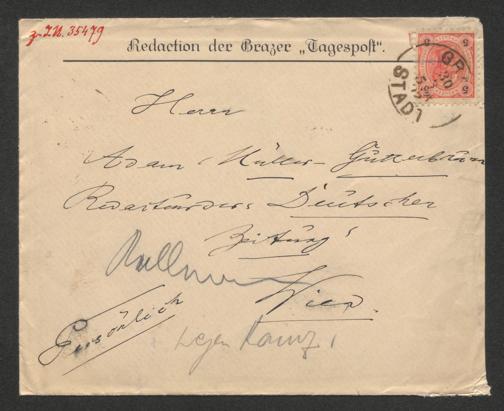 z. I.N. 35479
Redaction der Grazer „Tagespost".
Herrn
Adam Müller-Guttenbrunn
Redacteur der „Deutschen
Zeitung"
Wien.
Persönlich
wegen
5 5
GR
STADT